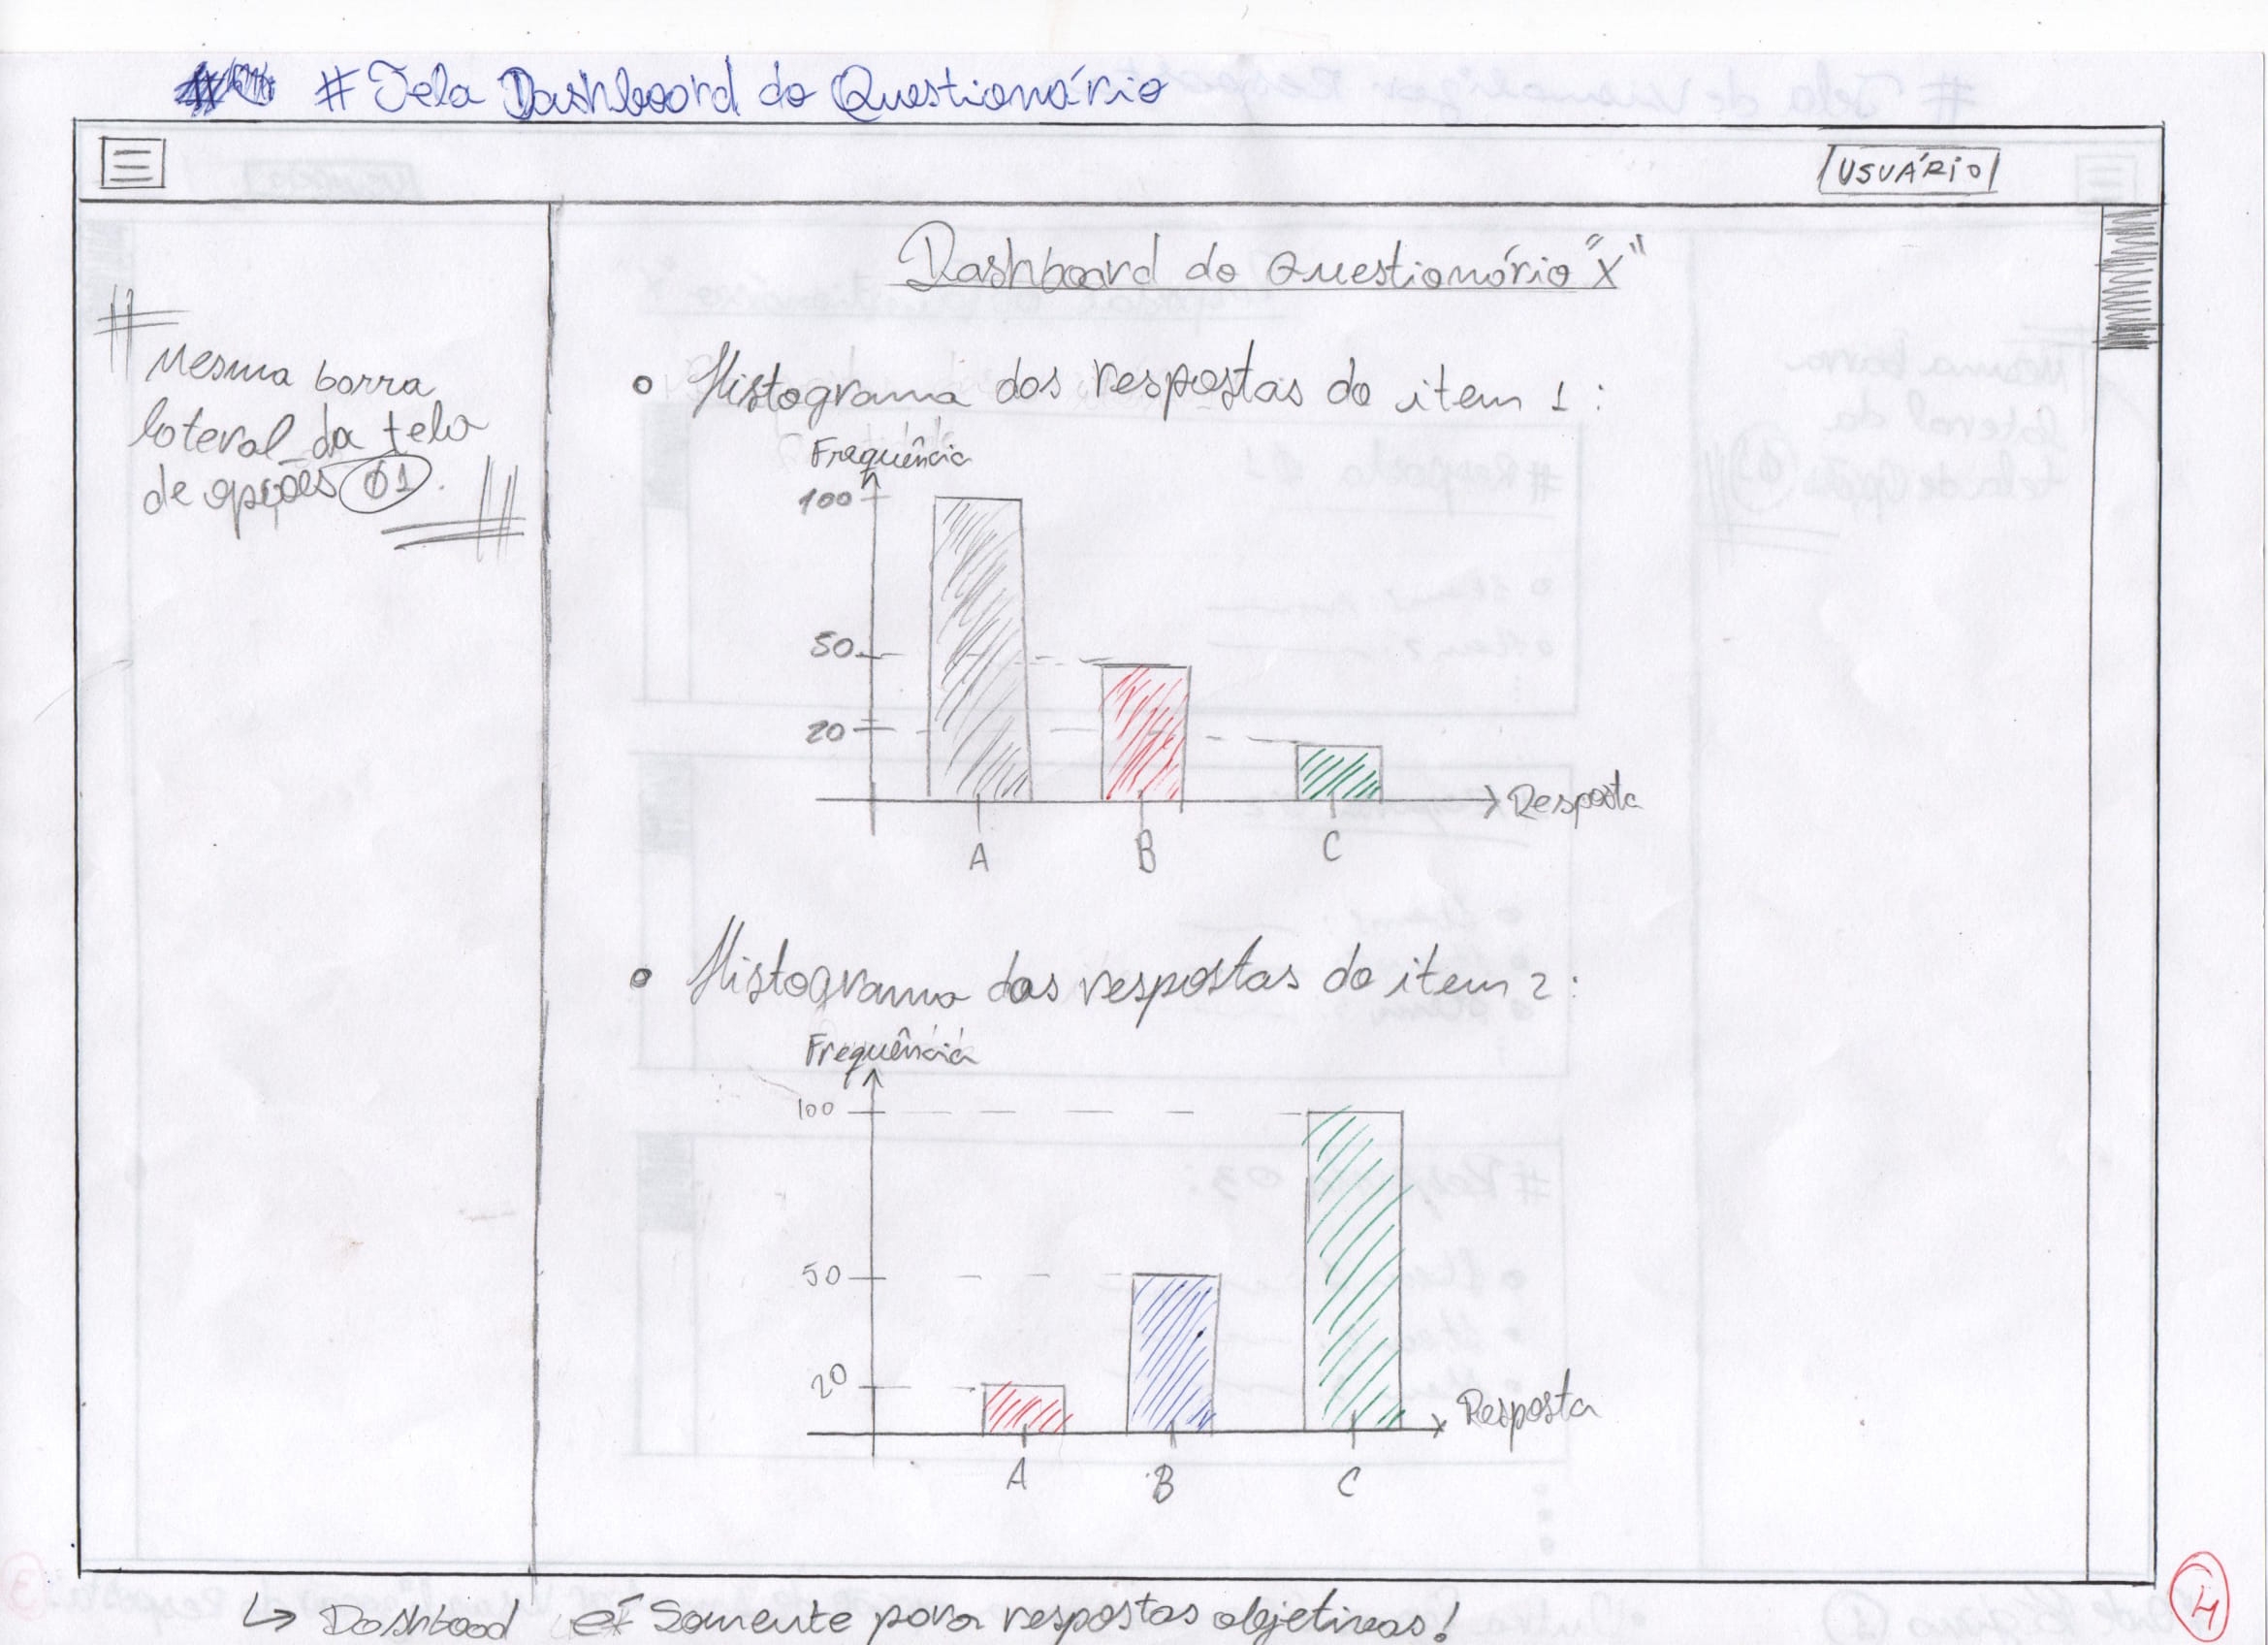 # Tela Dashboard do Questionário
USUÁRIO
Dashboard do Questionário "X"
Mesma barra
lateral da tela
de opções 01.
• Histograma das respostas do item 1:
Frequência
100
50
20
Resposta
A B C
• Histograma das respostas do item 2:
Frequência
100
50
20
Resposta
A B C
↳ Dashbood é Somente para respostas objetivas!
4